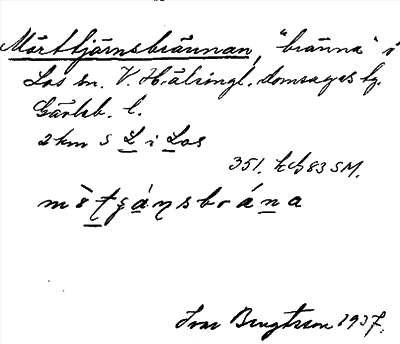 Mörttjärnsbrännan, "bränna" i
Los sn. V. Hälsingl. domsagas tg.
Gävleb. l.
2 km S L i Los
351. hch 83 SM.
Ivar Bengtsson 1937.